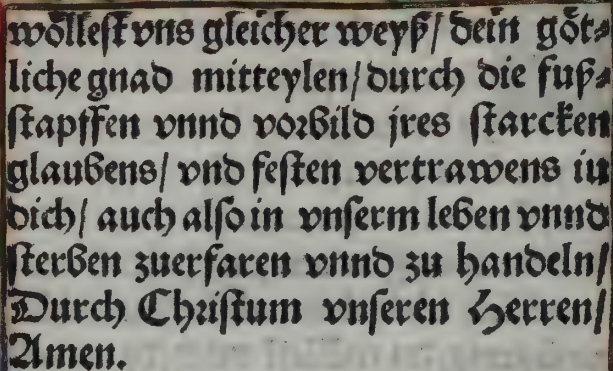 wöllest vns gleicher weyß/ dein göt-
liche gnad mitteylen/ durch die fuß-
stapffen vnnd vorbild jres starcken
glaubens/ vnd festen vertrawens in
dich/ auch also in vnserm leben vnnd
sterben zuerfaren vnnd zu handeln/
Durch Christum vnseren Herren/
Amen.